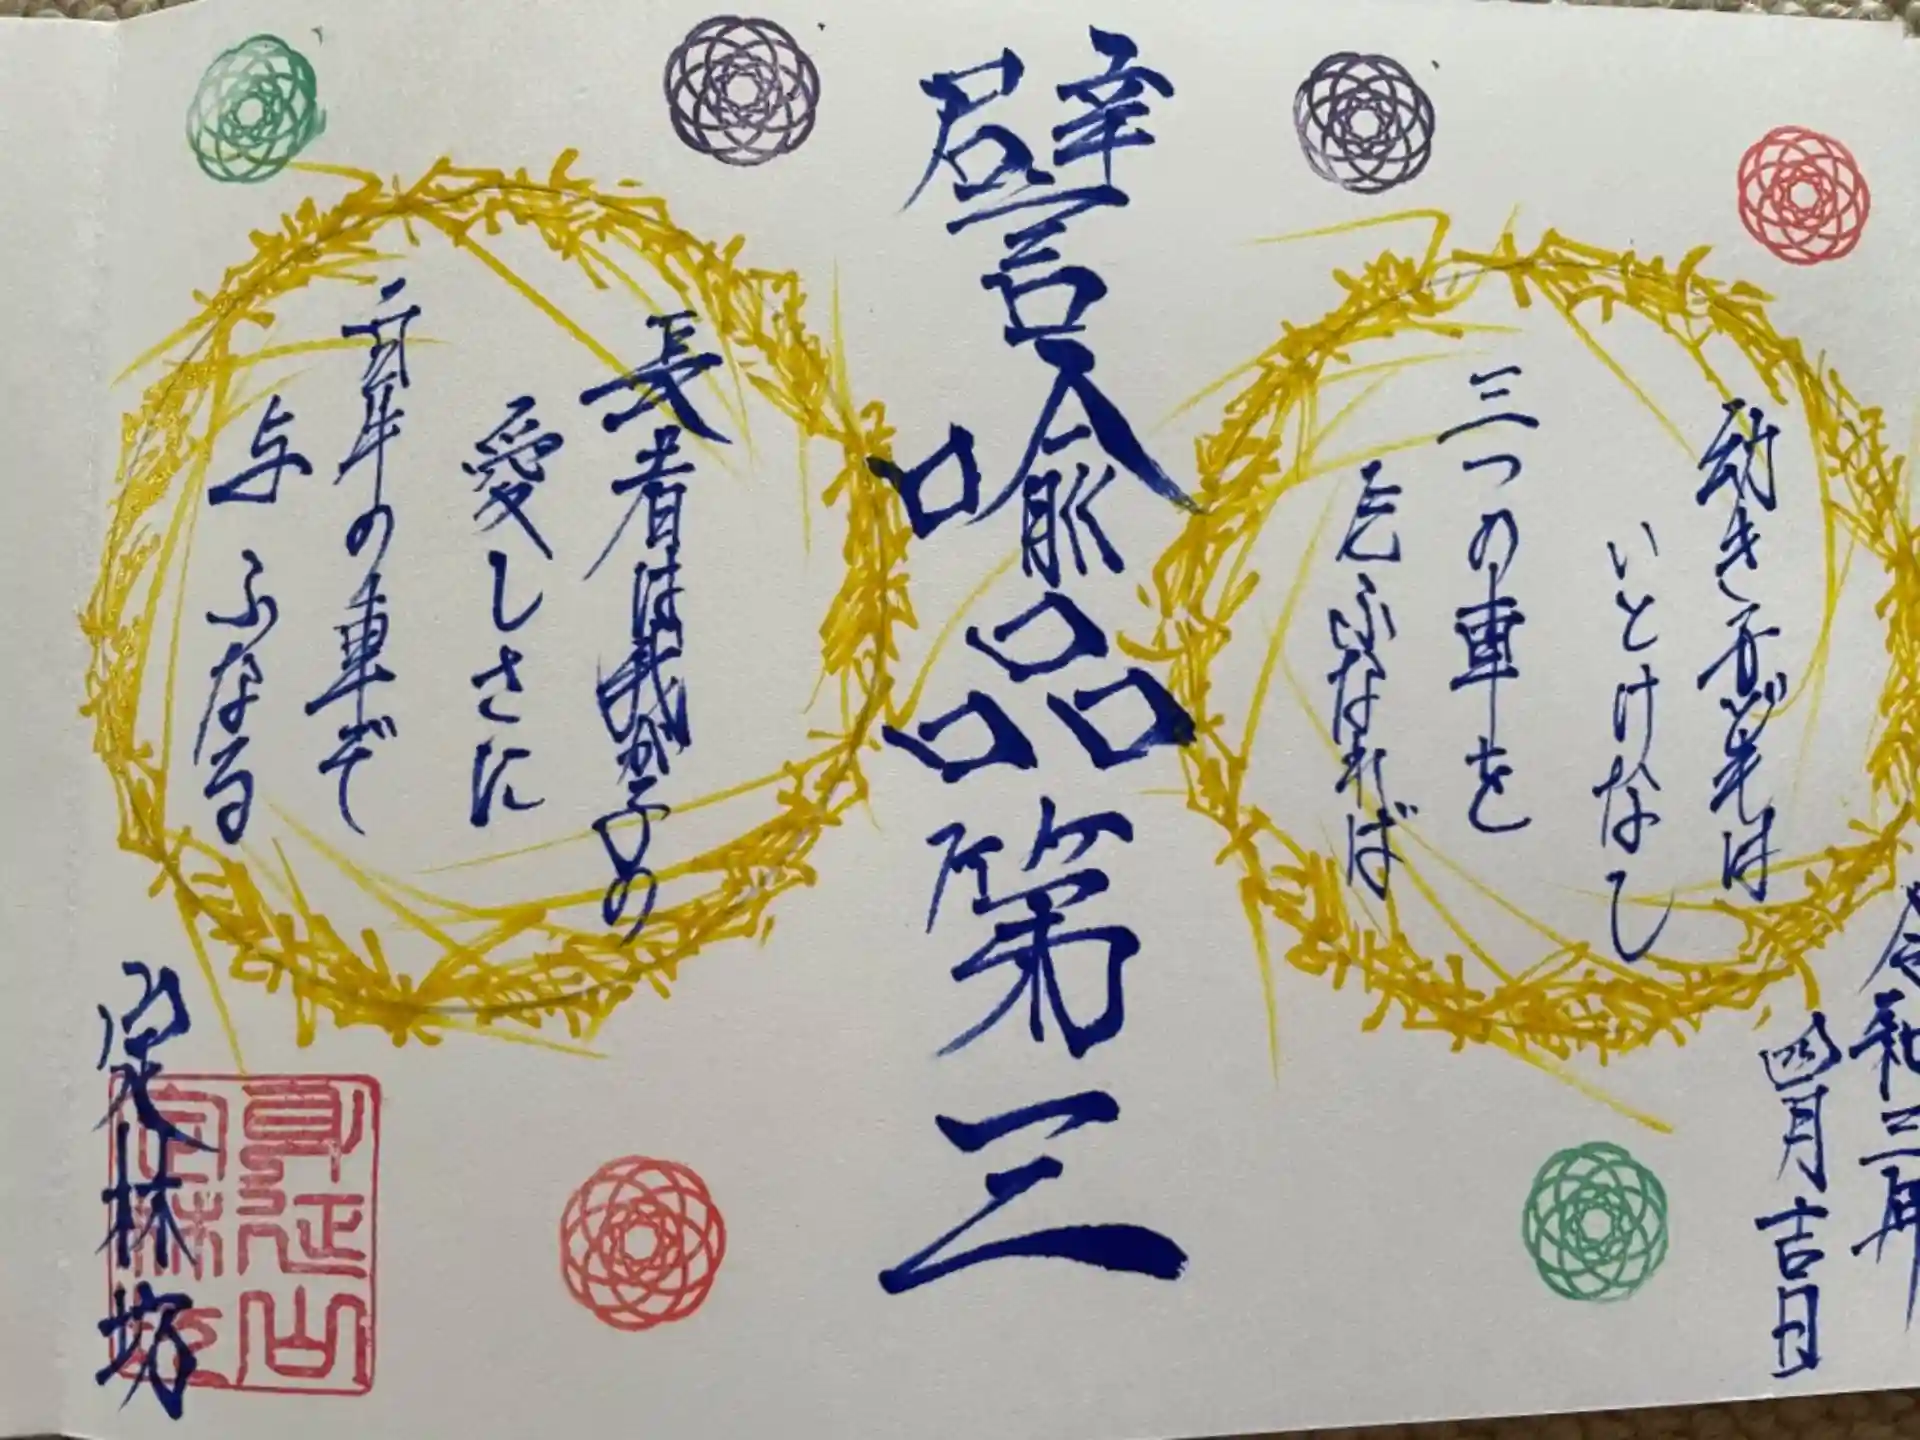 令和三年
四月吉日
幼き子どもは
いとけなし
三つの車を
乞ふなれば
譬喻品第三
長者は我が子の
愛しさに
白牛の車ぞ
与ふなる
定林坊
身延山
定林坊